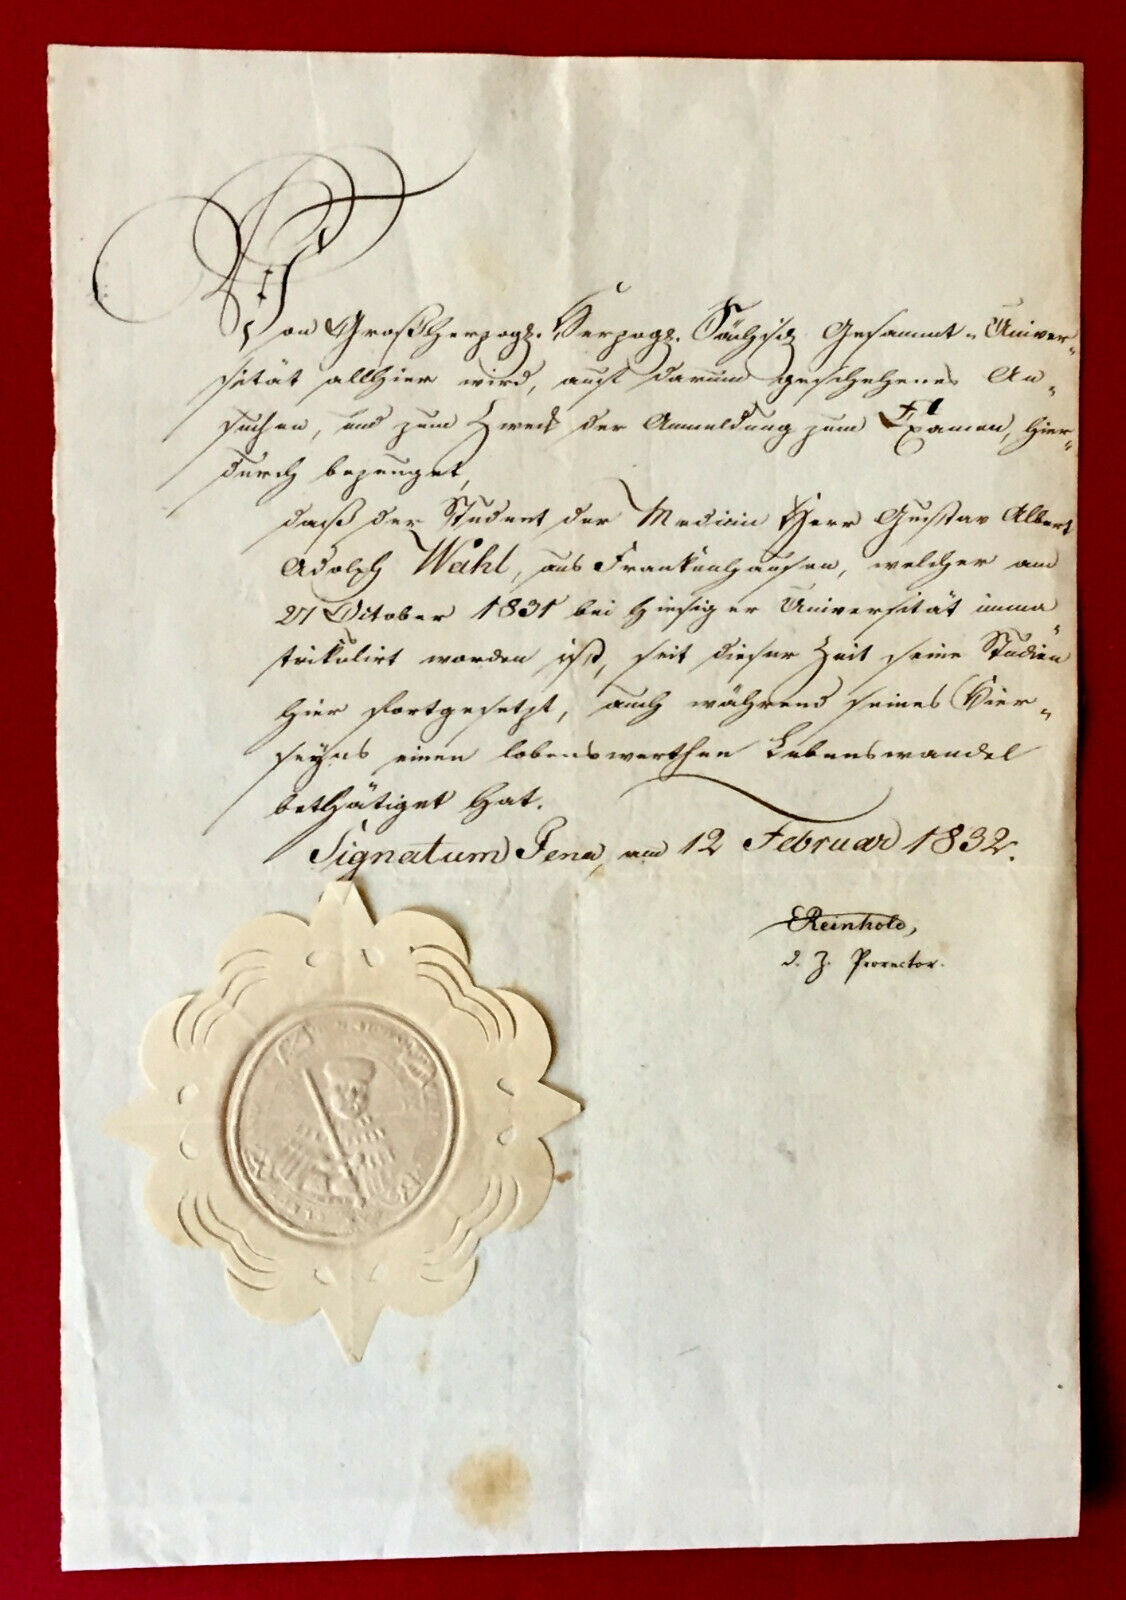 Von Großherzogl. Herzogl. Sächsisch. Gesammt-Univer-
sität allhier wird, auf darum geschehenes An-
suchen, und zum Zweck der Anmeldung zum Examen, hier-
durch bezeuget,
daß der Student der Medicin Herr Gustav Albert
Adolph Wahl, aus Frankenhausen, welcher am
27 October 1831 bei hiesiger Universität imma
trikulirt worden ist, seit dieser Zeit seine Studien
hier fortgesetzt, auch während seines Hier-
seyns einen lobenswerthen Lebenswandel
bethätiget hat.
Signatum Jena, am 12 Februar 1832.
EReinhold,
d. Z. Prorector.